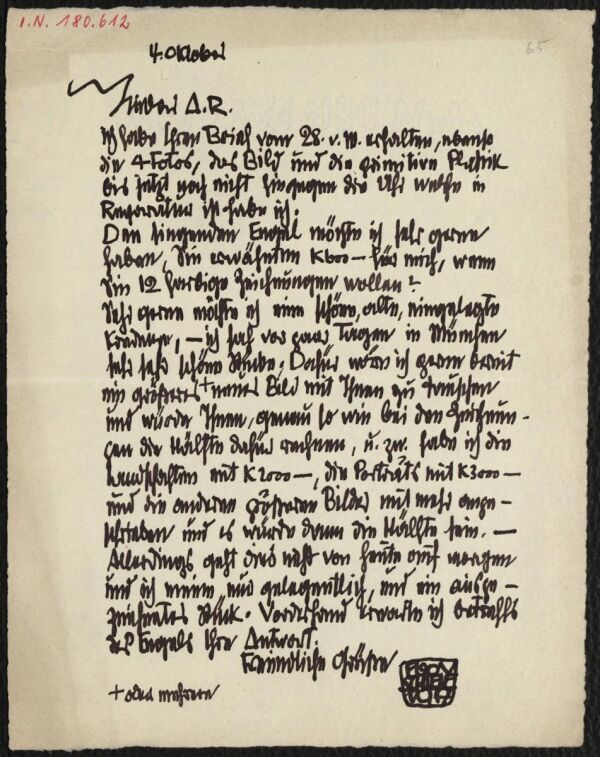 I.N. 180.612
65
4. Oktober
Lieber A.R.
Ich habe Ihren Brief vom 28. v. M. erhalten, ebenso
die 4 Fotos, das Bild und die primitive Plastik
bis jetzt noch nicht hingegen die Uhr welche in
Reparatur ist habe ich.
Den singenden Engel möchte ich sehr gerne
haben, Sie erwähnten K600— für mich, wenn
Sie 12 farbige Zeichnungen wollen?
Sehr gerne möchte ich eine schöne, alte, eingelegte
Kredenze, — ich sah vor paar Tagen in München
sehr sehr schöne Stücke. Dafür wäre ich gerne bereit
ein größeres + neues Bild mit Ihnen zu tauschen
und würde Ihnen, genau so wie bei den Zeichnun-
gen die Hälfte dafür rechnen, u. zw. habe ich die
Landschaften mit K2000—, die Porträts mit K3000—
und die anderen größeren Bilder mit mehr ange-
schrieben und es würde dann die Hälfte sein. —
Allerdings geht dies nicht von heute auf morgen
und ich meine nur gelegentlich, und ein ausge-
zeichnetes Stück. Vorderhand erwarte ich betreffs
des Engels Ihre Antwort.
Freundliche Grüße
EGON
SCHIELE
+ oder mehrere